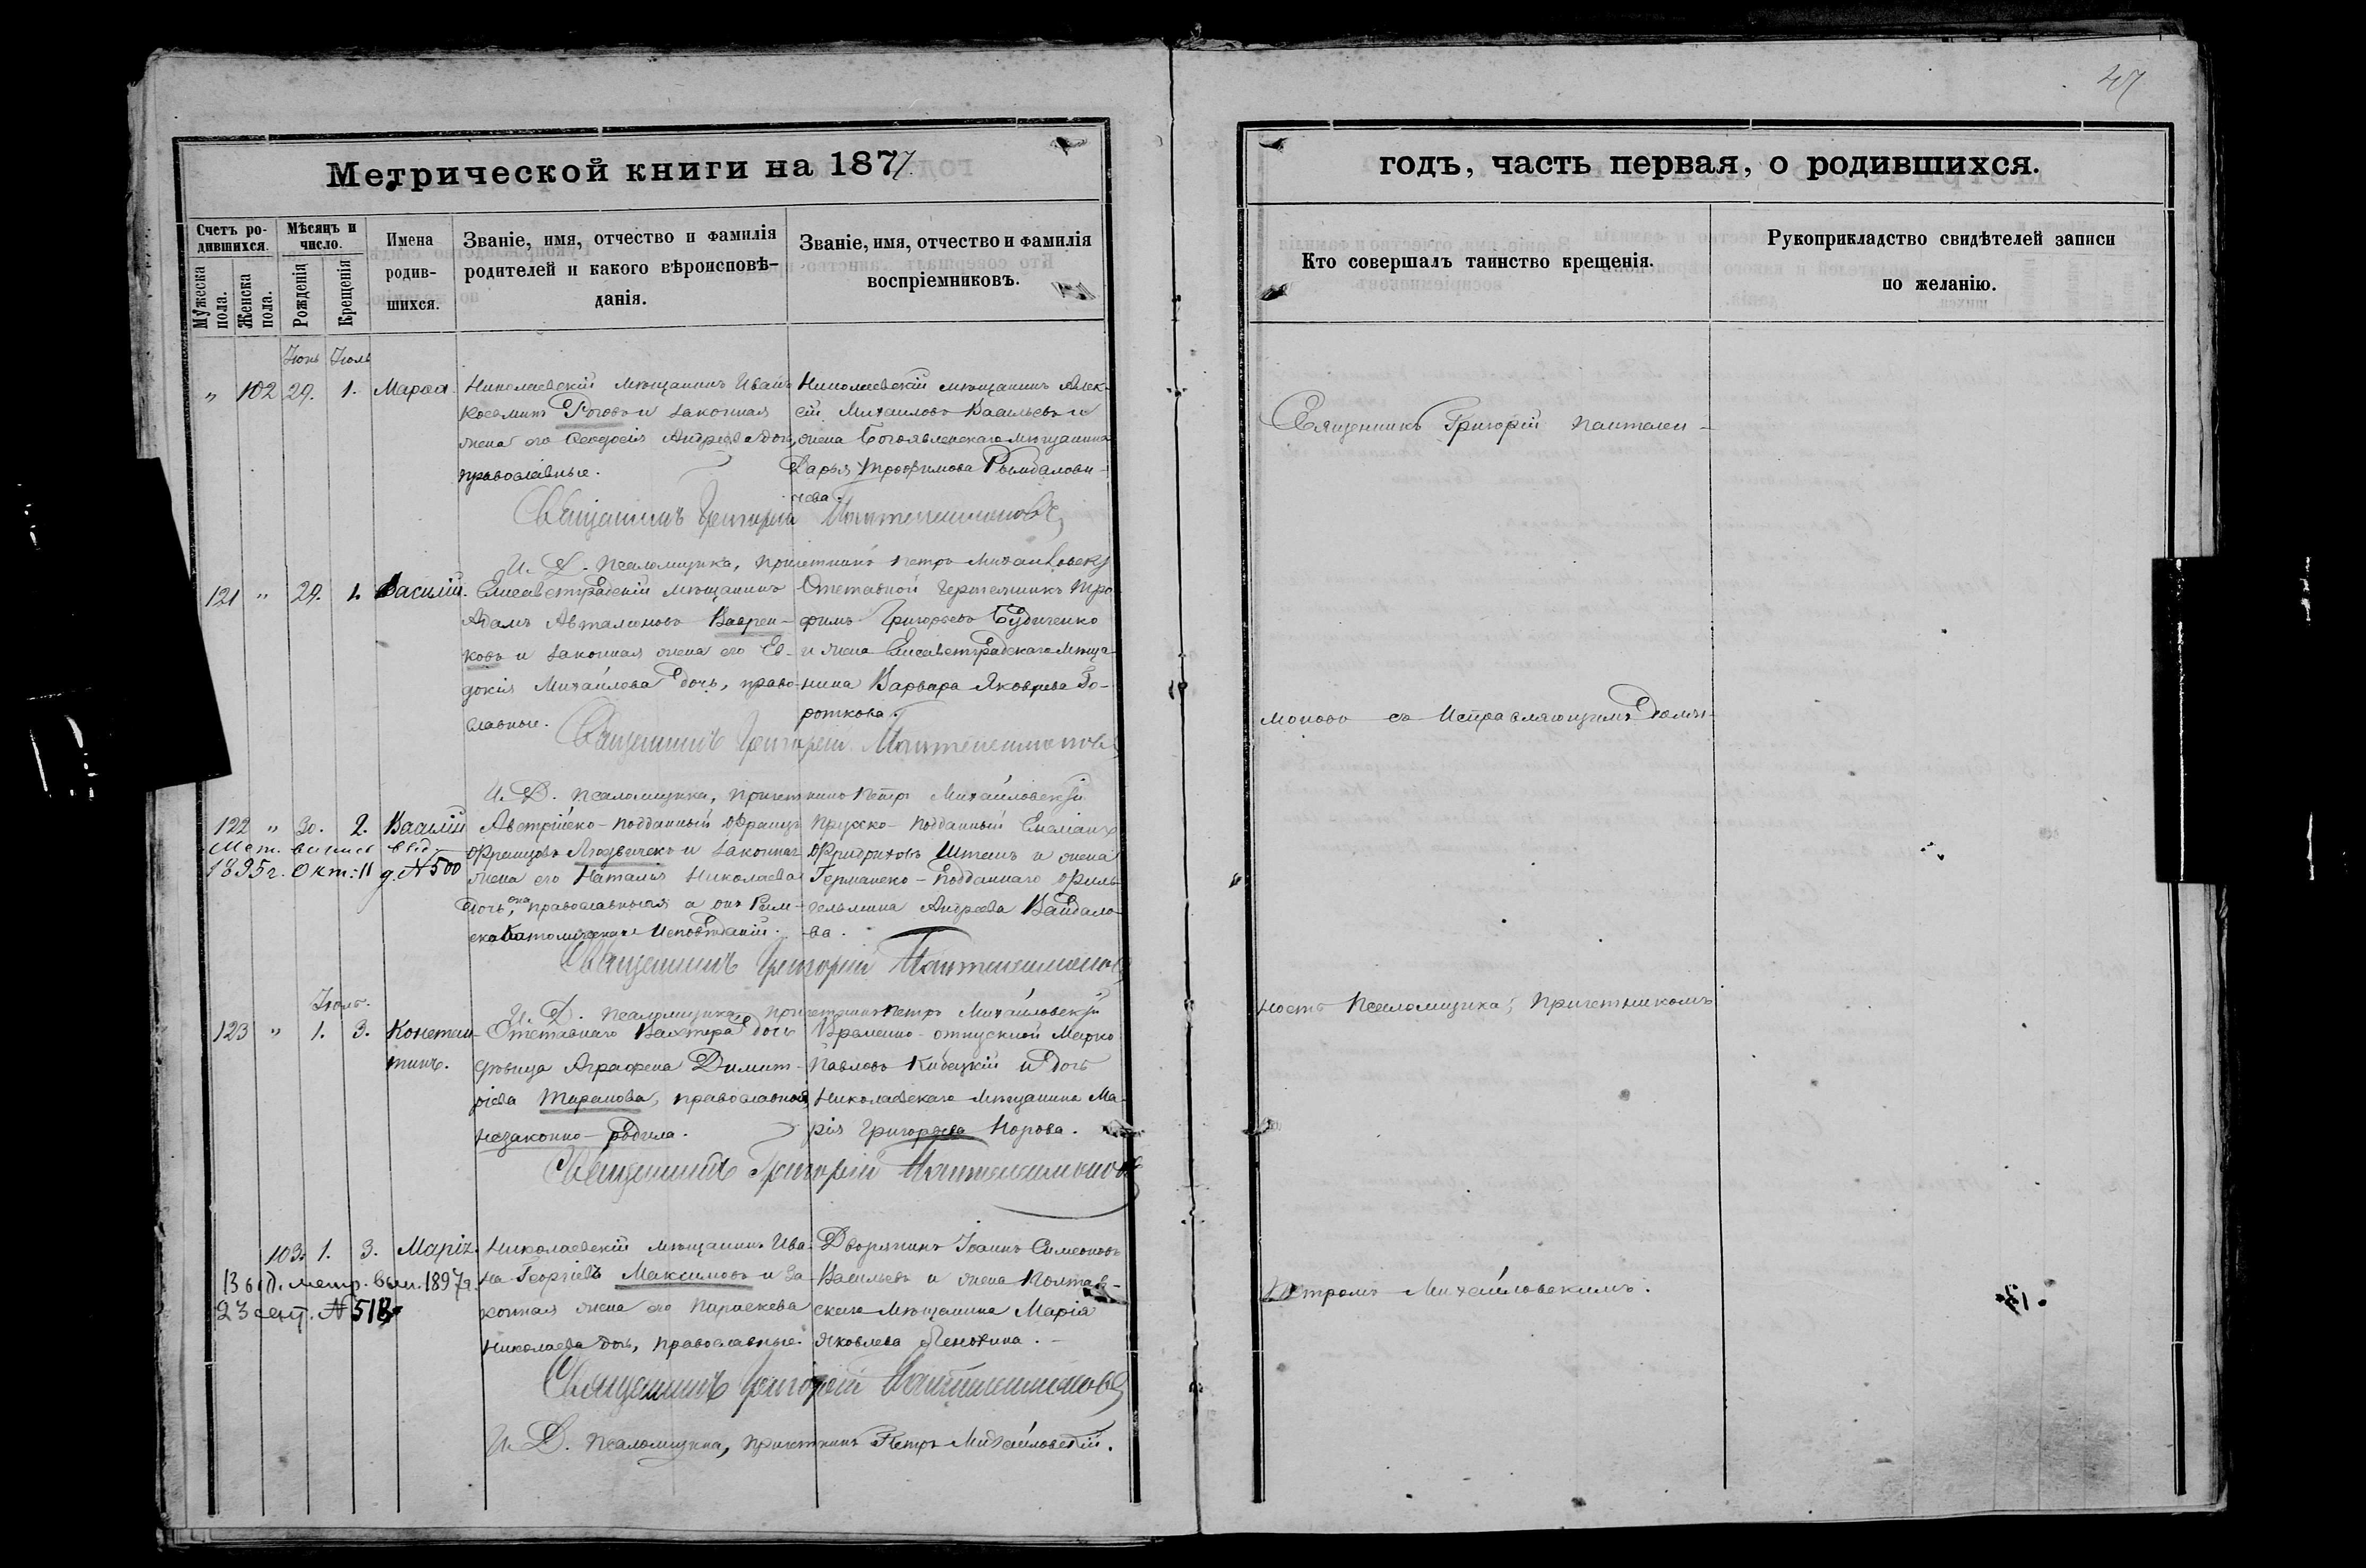 47
Метрической книги на 1877.
годъ, часть первая, о родившихся.
Счетъ ро-
дившихся.
Мужеска пола.
Женска пола.
Мѣсяцъ и
число.
Рожденія
Крещенія
Имена
родив-
шихся.
Званіе, имя, отчество и фамилія
родителей и какого вѣроисповѣ-
данія.
Званіе, имя, отчество и фамилія
воспріемниковъ.
Кто совершалъ таинство крещенія.
Рукоприкладство свидѣтелей записи
по желанію.
Іюнь Іюль
" 102 29. 1. Марѳа
Николаевскій мѣщанинъ Иванъ
Косминъ Роговъ и законная
жена его Ѳеодосія Андреева дочь,
православные.
Николаевскій мѣщанинъ Алек-
сій Михаиловъ Васильевъ и
жена Богоявленскаго мѣщанина
Дарья Трофимова
чева.
Священникъ Григорій Пантелеимоновъ
И. Д. Псаломщика, Причетникъ Петръ Михайловскій
121 " 29. 1. Василій.
Елисаветградскій мѣщанинъ
Адамъ Авталіоновъ Вавреню-
ковъ и законная жена его Ев-
докія Михайлова дочь, право-
славные.
Отставной Тро-
фимъ Григорьевъ Будиченко
и жена Елисаветградскаго мѣща-
нина Варвара Яковлева
роткова.
Священникъ Григорій Пантелеимоновъ
И. Д. Псаломщика, Причетникъ Петръ Михайловскій
122 " 30. 2. Василій
Мет. выпись выд.
1895 г. Окт: 11 д. № 500
Австрійско-подданный Францъ
Францовъ и законная
жена его Наталія Николаева
дочь, она православная а онъ Рим-
ско Католическаго Исповѣданій.
Прусско-подданный
Фридриховъ Штейнъ и жена
Германско-подданнаго Виль-
гельмина Андреева Вайдало-
ва.
Священникъ Григорій Пантелеимоновъ
И. Д. Псаломщика, Причетникъ Петръ Михайловскій
Іюль.
123 " 1. 3. Констан-
тинъ.
Отставнаго Вахтера дочь
дѣвица Аграфена Димит-
ріева Таранова, православная,
незаконно-родила.
Временно-отпускной Марко
Павловъ Кибецкій и дочь
Николаевскаго мѣщанина Ма-
рія Григорьева Норова.
Священникъ Григорій Пантелеимоновъ
103. 1. 3. Марія.
Выд. метр. вып. 1897 г.
23 сент. № 518
Николаевскій мѣщанинъ Ива-
нъ Георгіевъ Максимовъ и за-
конная жена его Параскева
Николаева дочь, православные.
Дворянинъ Іоаннъ Симеоновъ
Васильевъ и жена Полтав-
скаго мѣщанина Марія
Яковлева Ленохина.
Священникъ Григорій Пантелеимоновъ
И. Д. Псаломщика, Причетникъ Петръ Михайловскій.
Священникъ Григорій Пантелеи-
моновъ съ Исправляющимъ Долж-
ность Псаломщика, Причетникомъ
Петромъ Михайловскимъ.